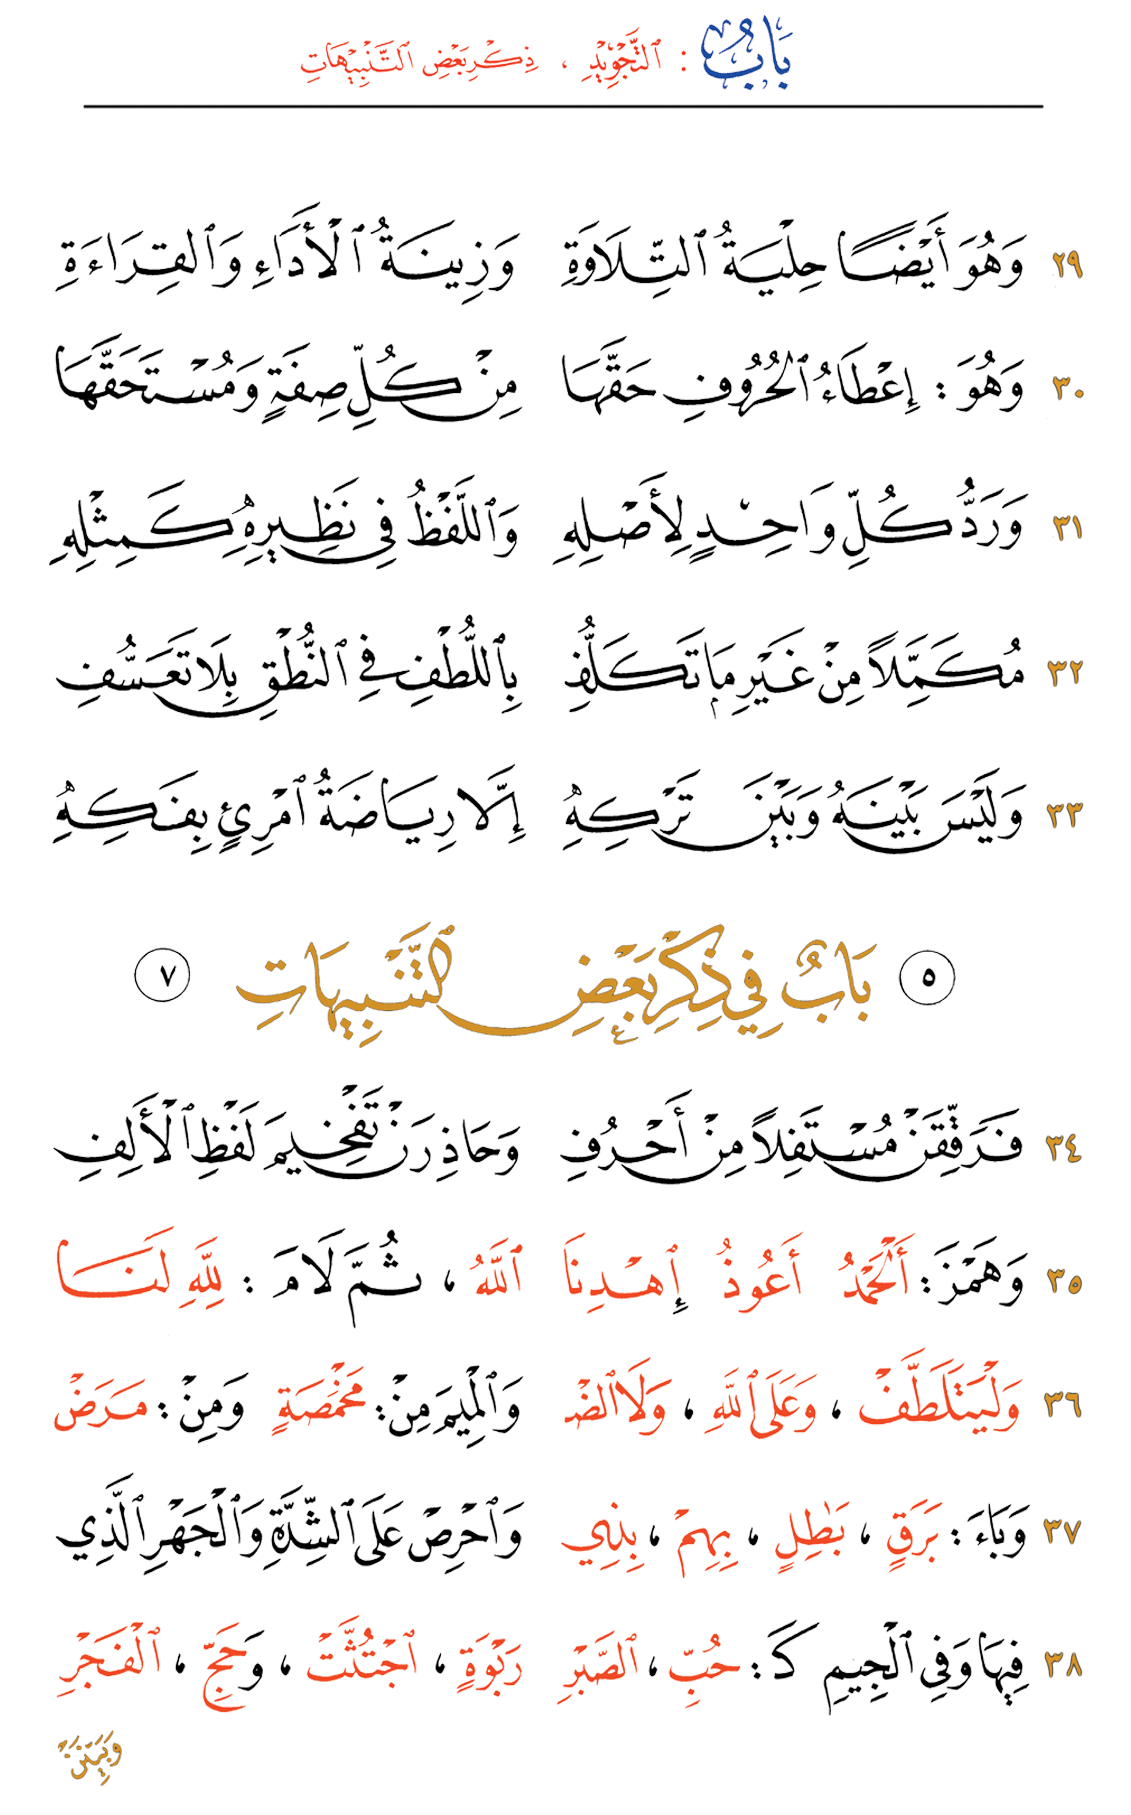 بَابُ : التَّجْوِيْدِ ، ذِكْرِ بَعْضِ التَّنْبِيْهَاتِ
٢٩ وَهُوَ أَيْضًا حِلْيَةُ ٱلتِّلَاوَةِ وَزِينَةُ ٱلْأَدَاءِ وَٱلْقِرَاءَةِ
٣٠ وَهُوَ : إِعْطَاءُ ٱلْحُرُوفِ حَقَّهَا مِنْ كُلِّ صِفَةٍ وَمُسْتَحَقَّهَا
٣١ وَرَدُّ كُلِّ وَاحِدٍ لِأَصْلِهِ وَٱللَّفْظُ فِي نَظِيرِهِ كَمِثْلِهِ
٣٢ مُكَمِّلاً مِنْ غَيْرِ مَا تَكَلُّفِ بِٱللُّطْفِ فِي ٱلنُّطْقِ بِلَا تَعَسُّفِ
٣٣ وَلَيْسَ بَيْنَهُ وَبَيْنَ تَرْكِهِ إِلَّا رِيَاضَةُ ٱمْرِئٍ بِفَكِّهِ
٥ بَابٌ فِي ذِكْرِ بَعْضِ ٱلتَّنْبِيهَاتِ ٧
٣٤ فَرَقِّقَنْ مُسْتَفِلاً مِنْ أَحْرُفِ وَحَاذِرَنْ تَفْخِيمَ لَفْظِ ٱلْأَلِفِ
٣٥ وَهَمْزَ : أَلْحَمْدُ أَعُوذُ إِهْدِنَا ٱللَّهُ ، ثُمَّ لَامَ : لِلَّهِ لَنَا
٣٦ وَلْيَتَلَطَّفْ ، وَعَلَى ٱللَّهِ ، وَلَا ٱلضْ وَٱلْمِيمَ مِنْ : مَخْمَصَةٍ وَمِنْ : مَرَضْ
٣٧ وَبَاءَ : بَرْقٍ ، بَٰطِلٍ ، بِهِمْ ، بِذِي وَٱحْرِصْ عَلَى ٱلشِّدَّةِ وَٱلْجَهْرِ ٱلَّذِي
٣٨ فِيهَا وَفِي ٱلْجِيمِ كَـ : حُبِّ ، ٱلصَّبْرِ رَبْوَةٍ ، ٱجْتُثَّتْ ، وَحَجِّ ، ٱلْفَجْرِ
وَبَيِّنَنْ